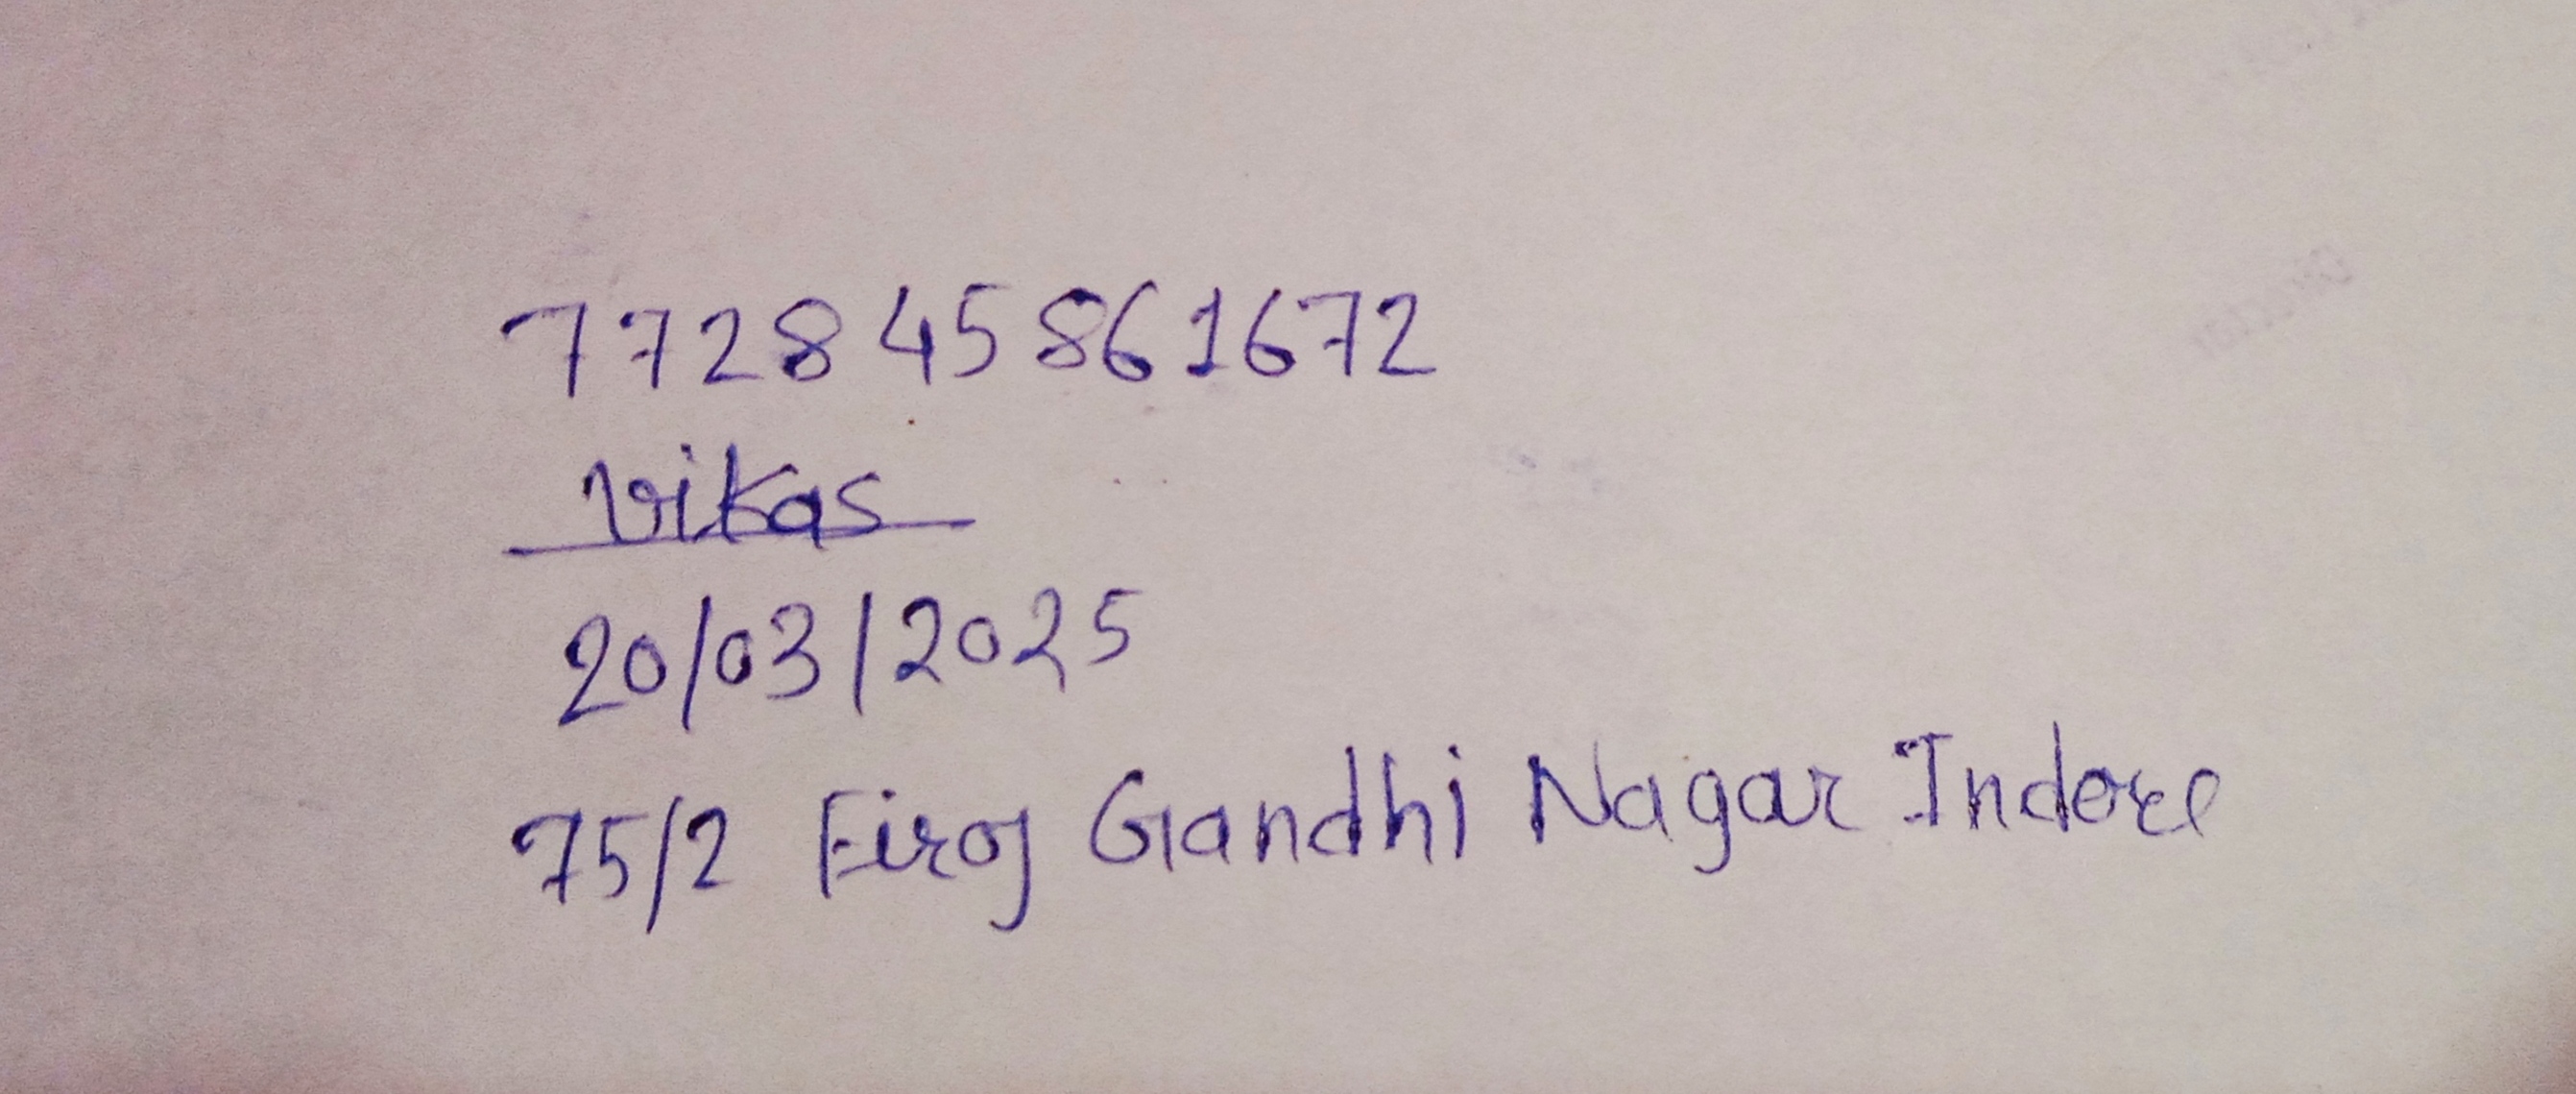 772845861672
Vikas
20/03/2025
75/2 Firoj Gandhi Nagar Indore